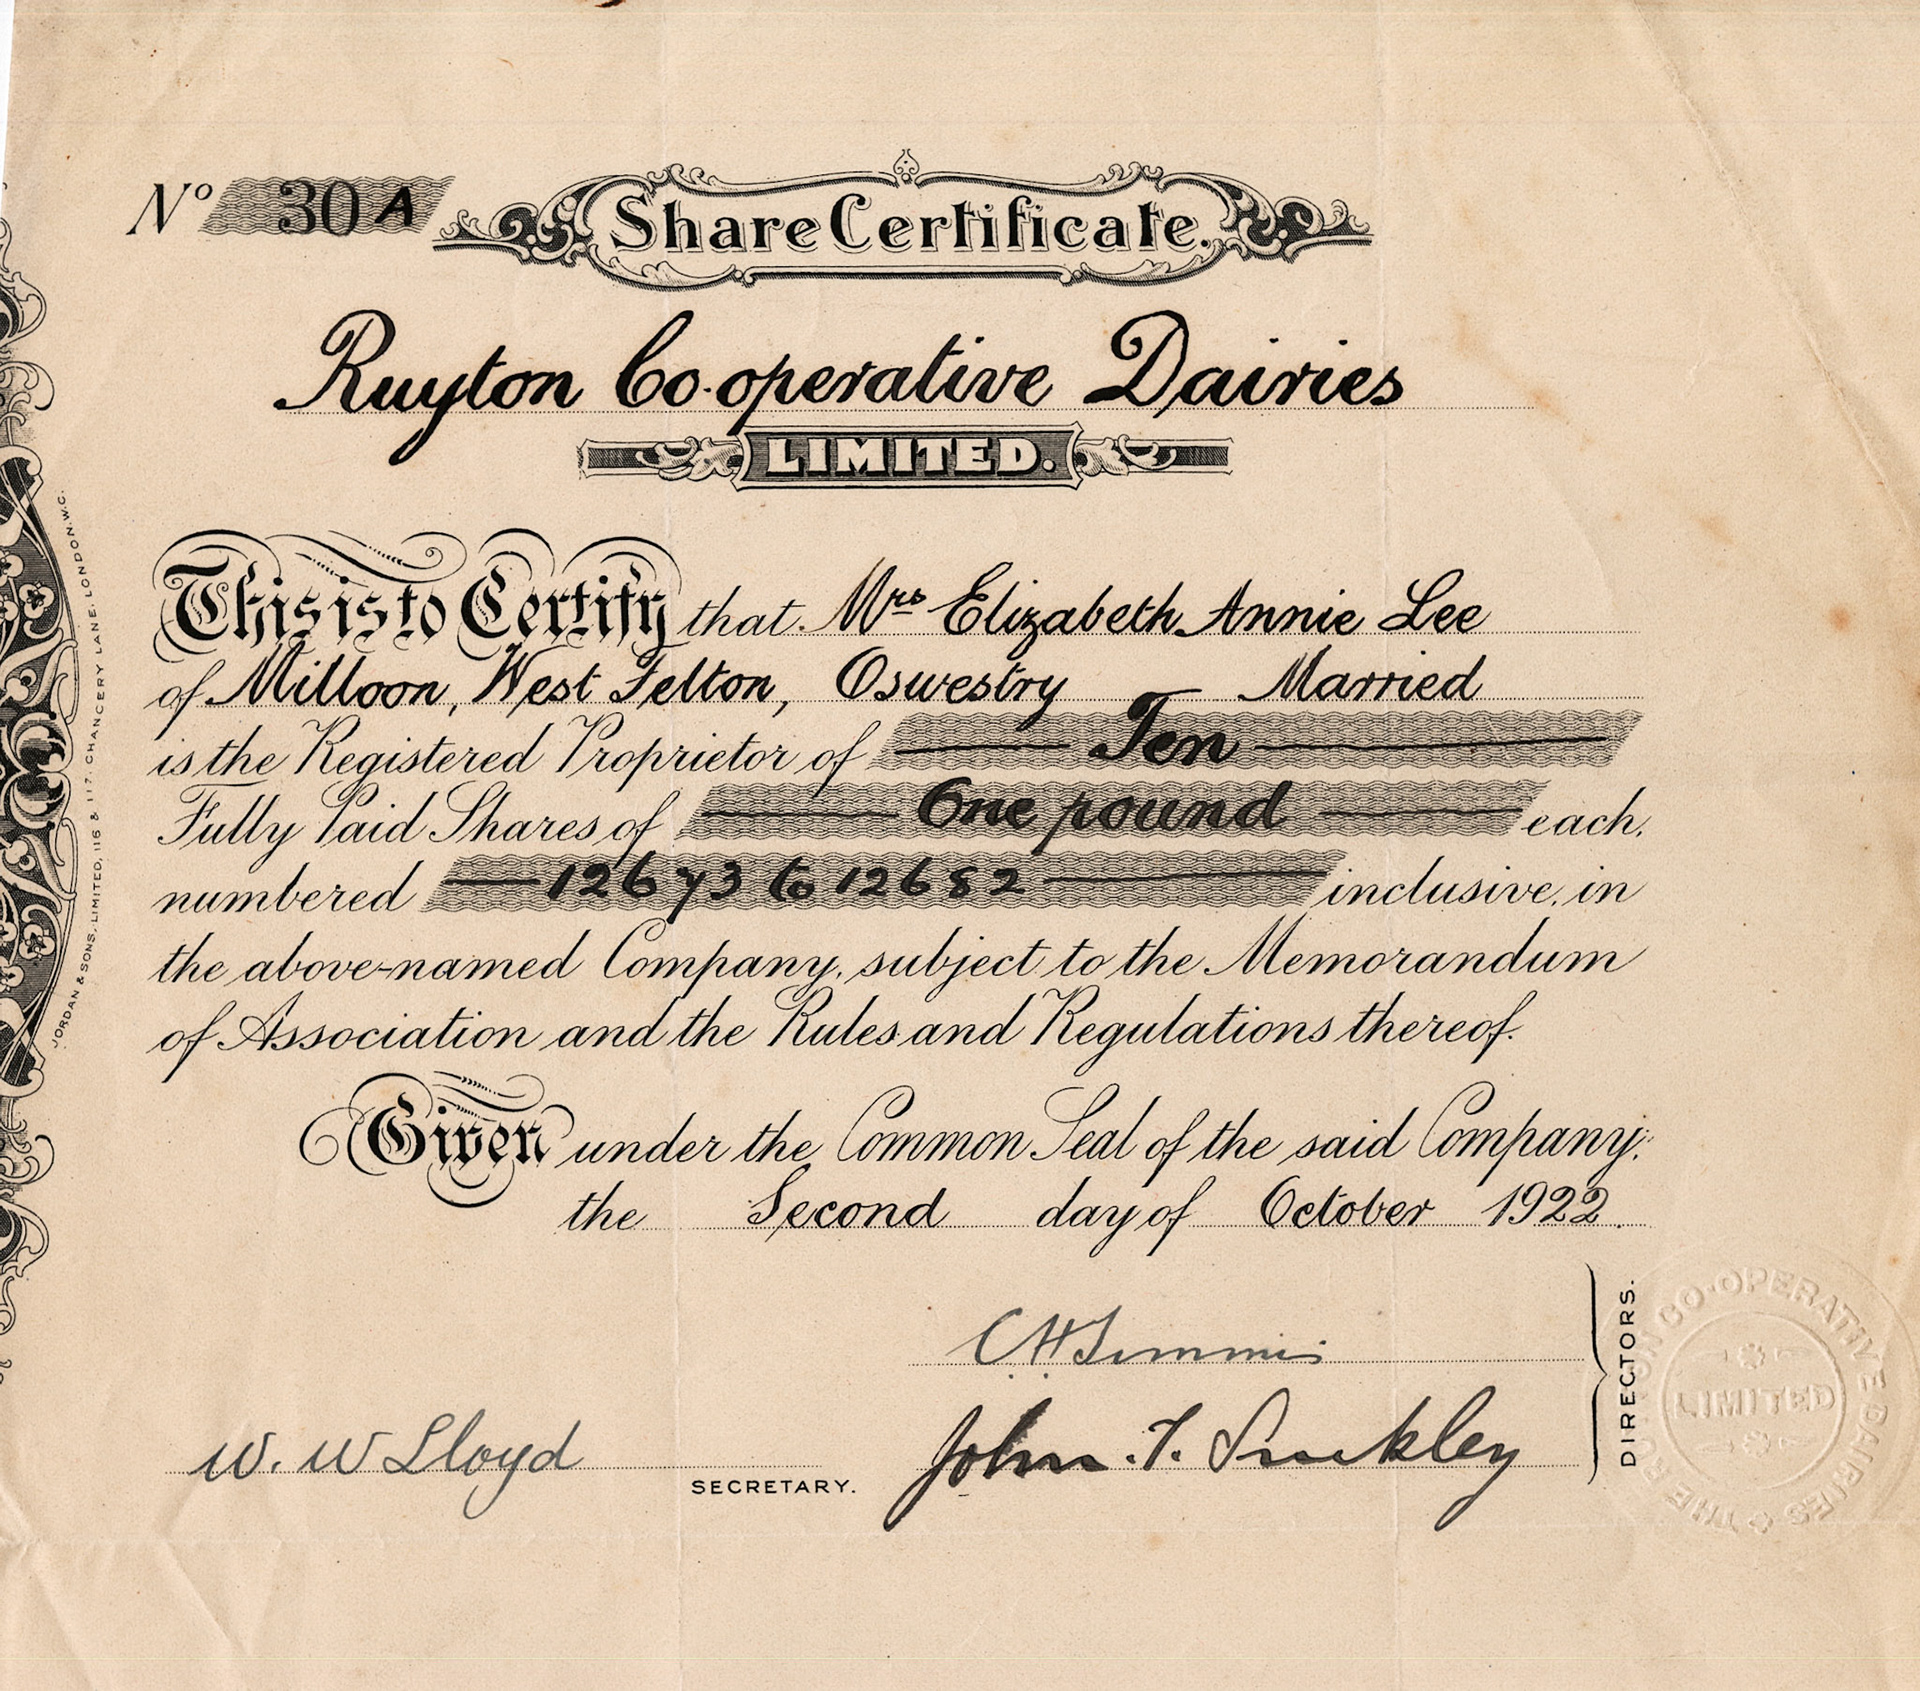 Nº 30 A
Share Certificate.
Ruyton Co-operative Dairies
LIMITED.
This is to Certify that Mrs Elizabeth Annie Lee
of Milloon, West Felton, Oswestry Married
is the Registered Proprietor of Ten
Fully Paid Shares of One pound each,
numbered 12673 to 12682 inclusive, in
the above-named Company, subject to the Memorandum
of Association and the Rules and Regulations thereof.
Given under the Common Seal of the said Company,
the Second day of October 1922.
C H Timmis
John. T.
DIRECTORS.
W. W Lloyd
SECRETARY.
JORDAN & SONS, LIMITED, 116 & 117, CHANCERY LANE, LONDON, W.C.
THE CO-OPERATIVE DAIRIES
LIMITED